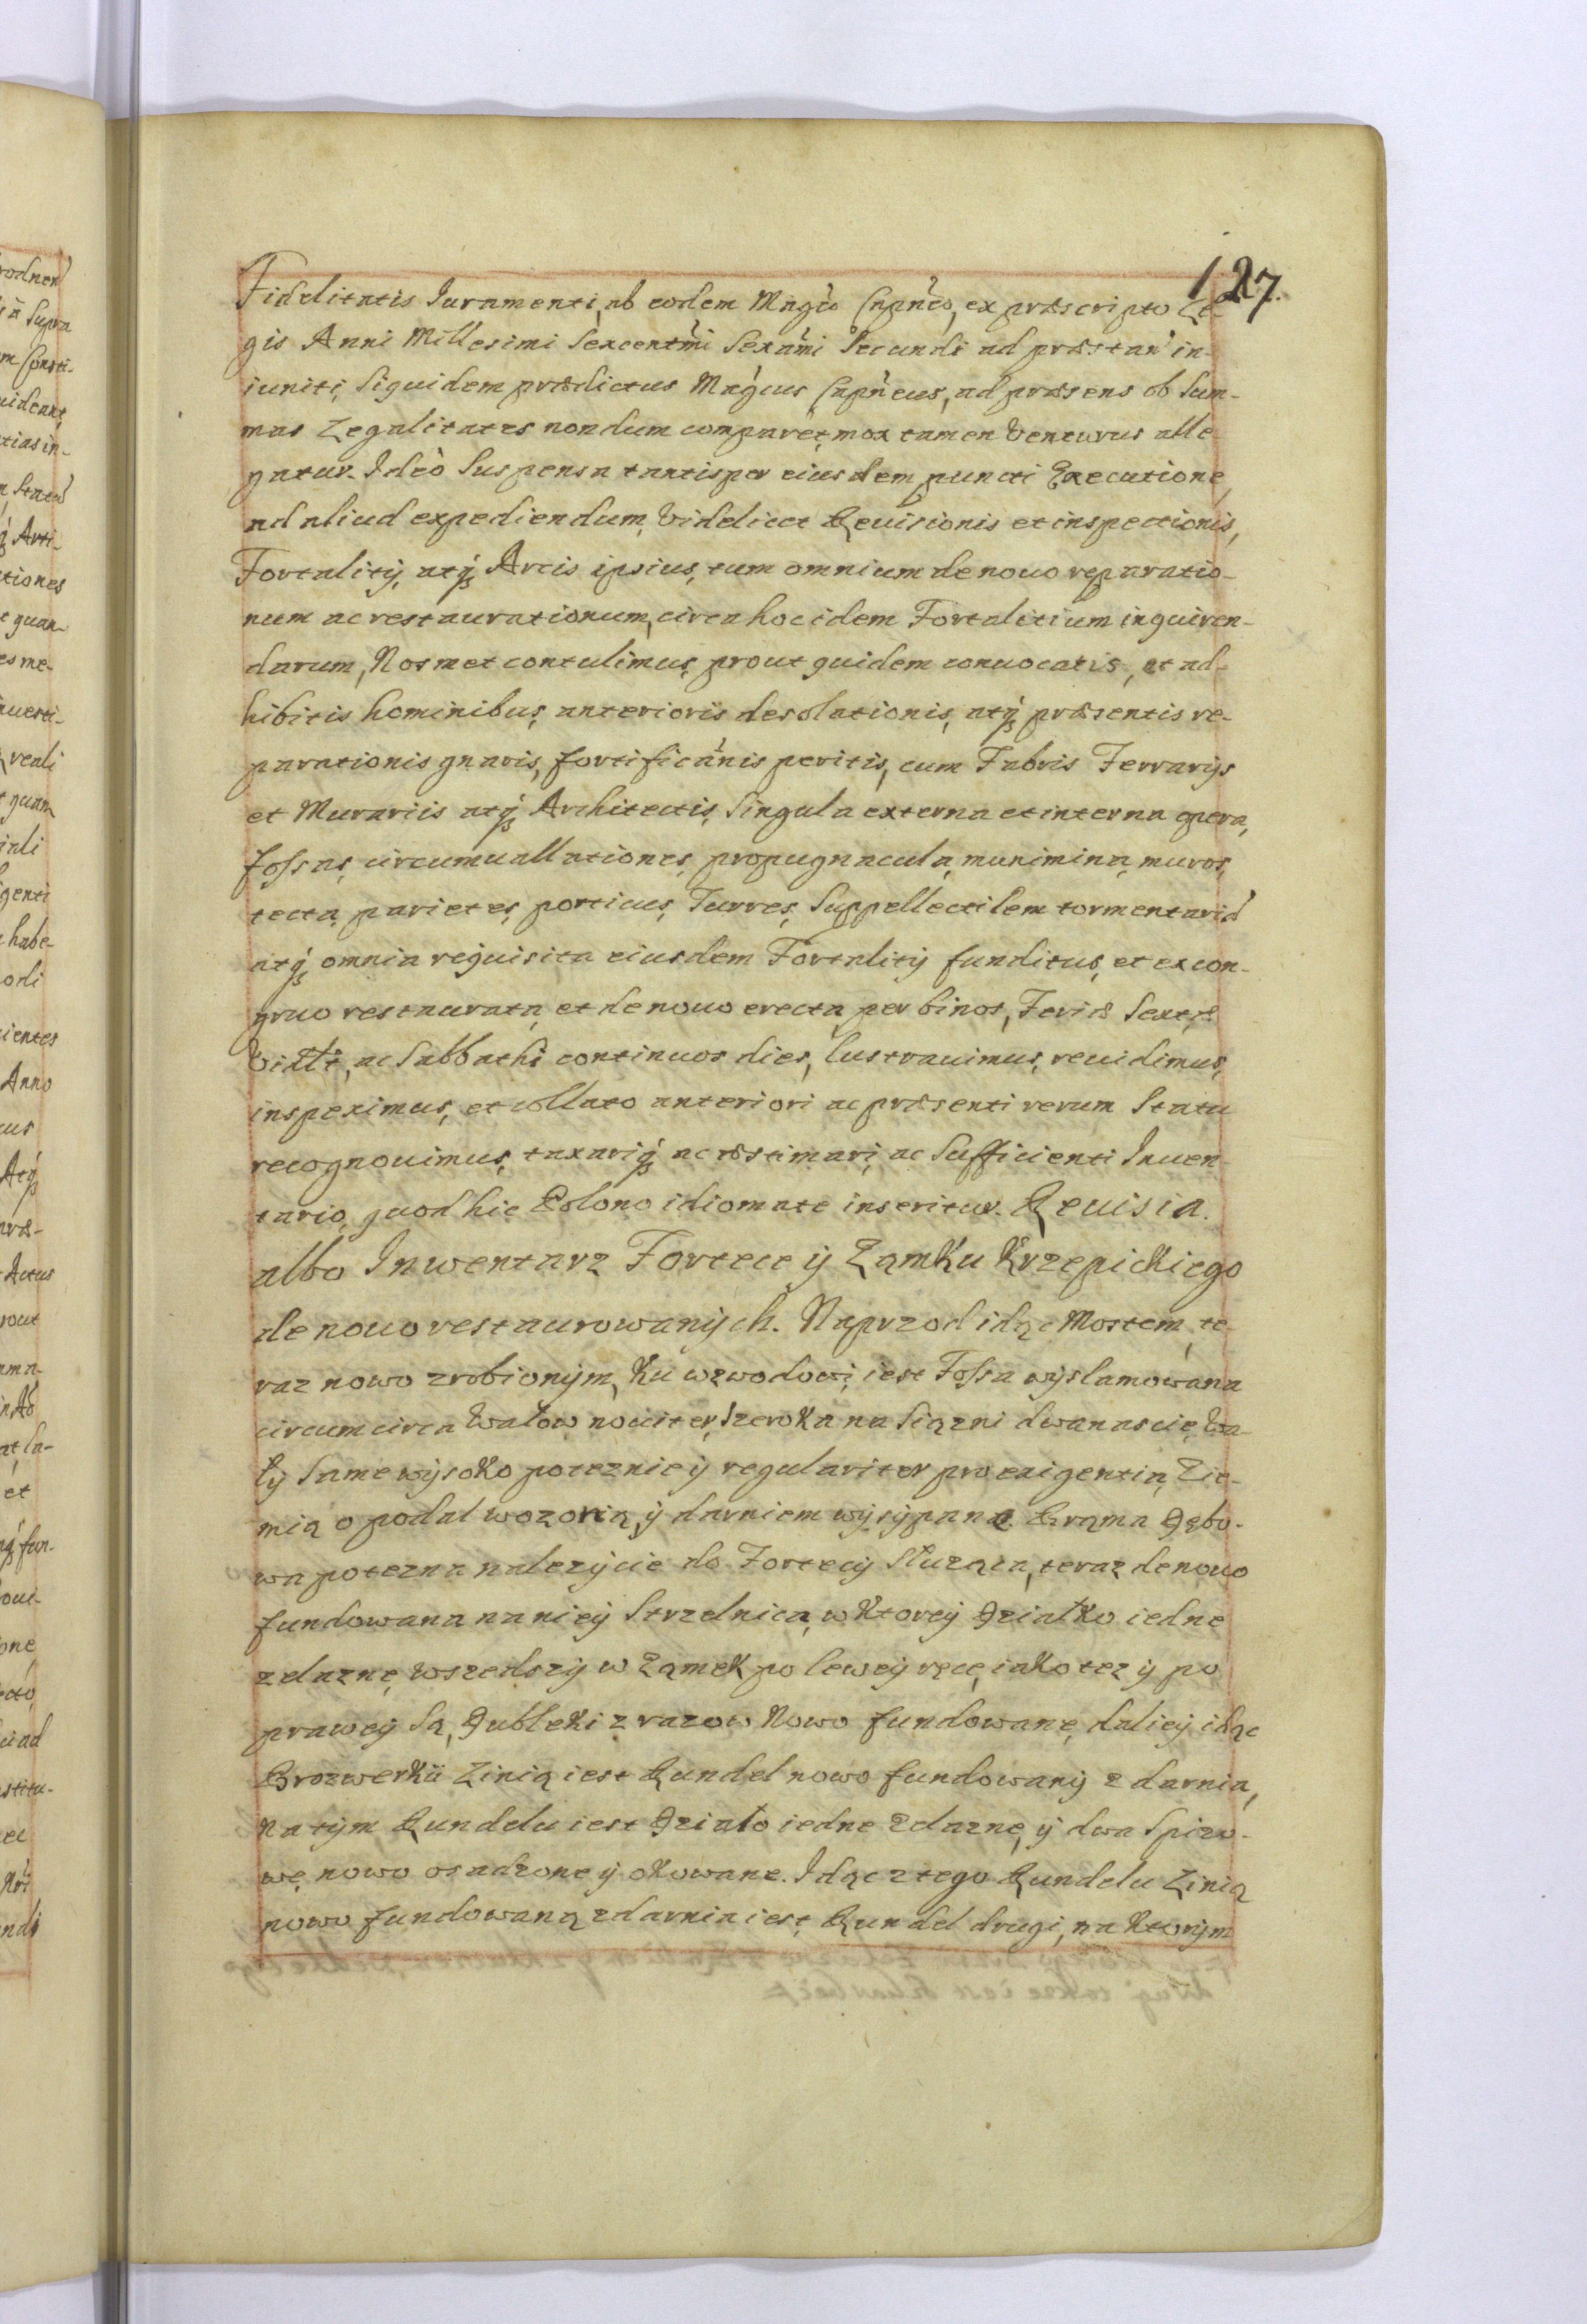 127.
Fidelitatis Iuramenti, ab eodem Magco Capneo, ex præscripto Le-
gis Anni Millesimi Sexcentmi Sexami Secundi ad præstan' in-
iuncti, Siquidem prædictus Magcus Capneus, ad præsens ob Sum-
mas Legalitates nondum comparet, mox tamen Venturus alle-
gatur. Ideò Suspensa tantisper eiusdem puncti Executione,
ad aliud expediendum, Videlicet Reuisionis et inspectionis,
Fortalitÿ, atq́ Arcis ipsius, tum omnium de nouo reparatio-
num ac restaurationum, circa hoc idem Fortalitium inquiren-
darum, Nosmet contulimus, prout quidem conuocatis, et ad-
hibitis hominibus, anterioris desolationis, atq́ præsentis re-
parationis gnaris, fortificānis peritis, cum Fabris Ferrarÿs
et Murariis atq́ Architectis, Singula externa et interna opera,
fossas, circumuallationes, propugnacula, munimina, muros,
tecta, parietes, porticus, Turres, Suppellectilem tormentariā
atq́ omnia requisita eiusdem Fortalitÿ funditus, et ex con-
gruo restaurata, et de nouo erecta per binos, Feriæ Sextæ
Vizlt, ac Sabbathi continuos dies, lustrauimus, reuidimus,
inspeximus, et collato anteriori ac præsenti rerum Statu
recognouimus, taxariq́ ac æstimari, ac Sufficienti Inuen-
tario, quod hic Polono idiomate inseritur. Reuisia.
albo Inwentarz Fortece ÿ Zamku Krzepickiego
de nouo restaurowanÿch. Naprzod idąc Mostem, te-
raz nowo zrobionÿm, Ku wzwodowi, iest Fossa wÿslamowana
circumcirca Wałow nouiter, szeroka na Siązni dwanascie, Wa-
łÿ Same wÿsoko potęznie ÿ regulariter pro exigentia, Zie-
mią opodal wozoną, ÿ darniem wÿsÿpane. Brama Dębo-
wa potęzna nalezÿcie do Fortecÿ Słuząca, teraz de nouo
fundowana na nieÿ Strzelnica, w Ktoreÿ Działko iedne
zelazne, wszedszÿ w Zamek po leweÿ ręce, iako tez ÿ po
praweÿ Są, Dubleki z razow Nowo fundowane, dalieÿ idąc
Brozwerku Linią iest Rundel nowo fundowanÿ z darnia,
Na tÿm Rundelu iest Działo iedne Zelazne, ÿ dwa Spizo-
we, nowo osadzone ÿ okowane. Idąc z tego Rundelu Linią
nowo fundowaną z darnia iest, Rundel drugi, na Ktorÿm